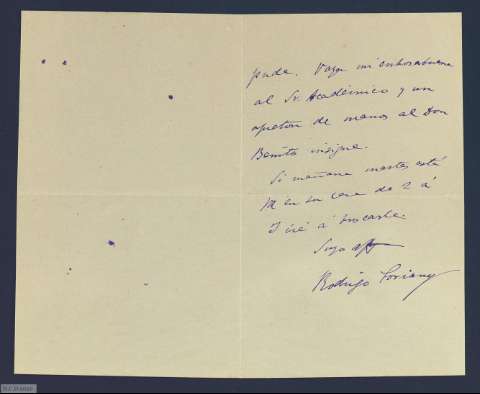 pude. Vaya mi enhorabuena
al Sr. Académico y un
apretón de manos al Don
Benito insigne.
Si mañana martes está
Vd en su casa de 2 á
3 iré á buscarle.
Suyo affmo
Rodrigo Soriano